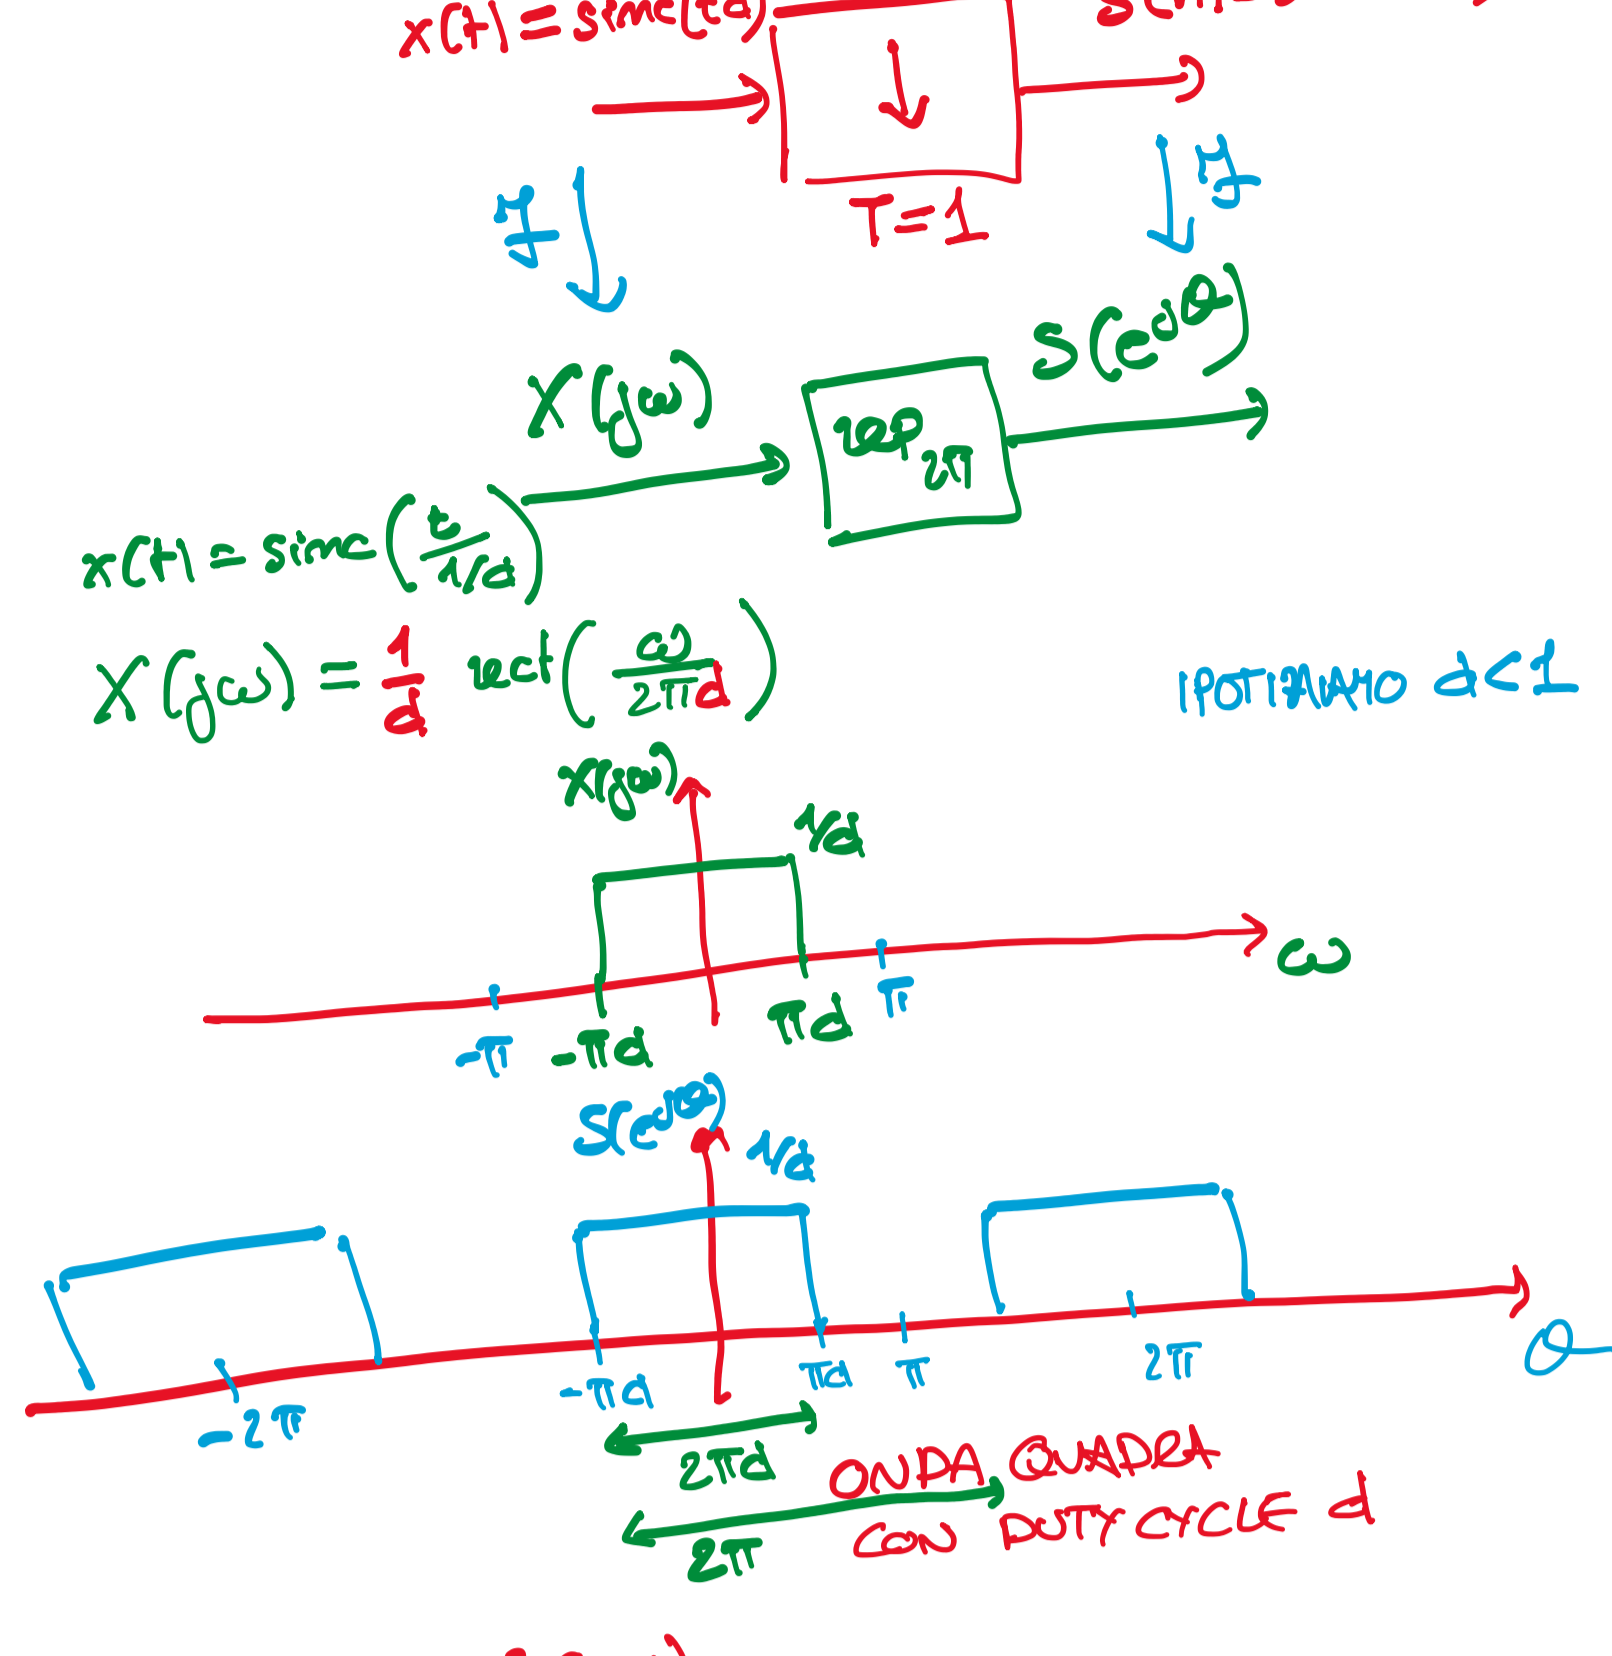 x(t) = sinc(td)
T=1
F
F
X(jω)
rep 2π
S(e^jθ)
x(t) = sinc(t/1/d)
X(jω) = 1/d rect(ω/2πd)
IPOTIZZIAMO d<1
X(jω)
1/d
ω
-π -πd πd π
S(e^jθ)
1/d
-2π -πd πd π 2π
θ
2πd
2π
ONDA QUADRA
CON DUTY CYCLE d